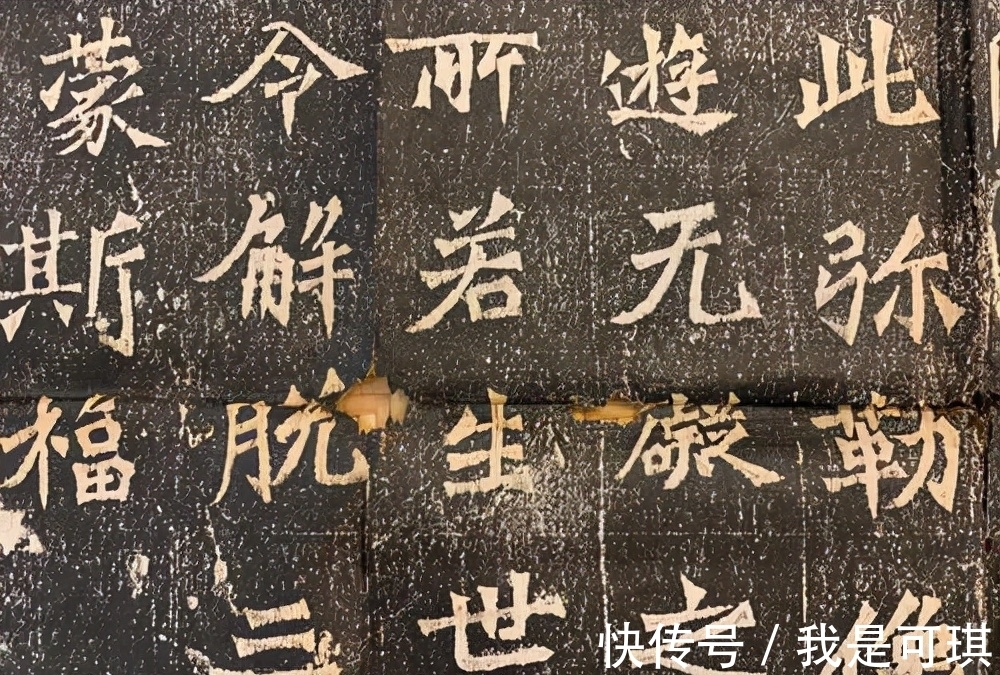 此弥勒像
遊无礙之
所若生世
令解脱三
蒙斯福
快传号 / 我是可琪